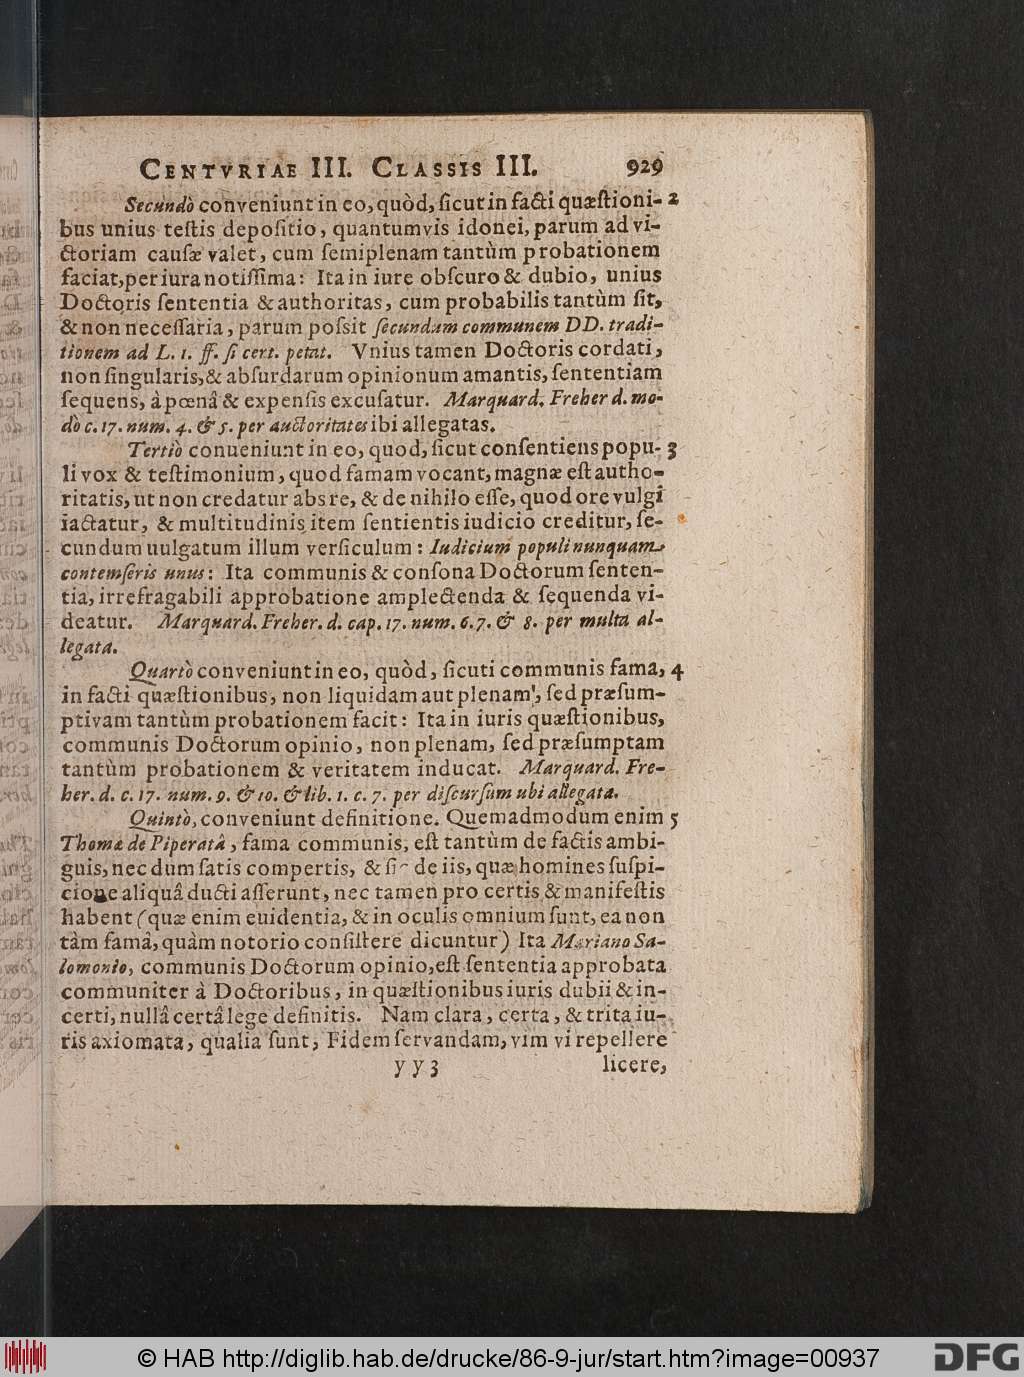 CENTVRIAE III. CLASSIS III. 929
Secundò conveniunt in eo, quòd, ſicut in facti quæſtioni- 2
bus unius teſtis depoſitio, quantumvis idonei, parum ad vi-
ctoriam cauſæ valet, cum ſemiplenam tantùm probationem
faciat, per iura notiſſima: Ita in iure obſcuro & dubio, unius
Doctoris ſententia & authoritas, cum probabilis tantùm ſit,
& non neceſſaria, parum poſsit ſecundum communem DD. tradi-
tionem ad L. 1. ff. ſi cert. petat. Vnius tamen Doctoris cordati,
non ſingularis, & abſurdarum opinionum amantis, ſententiam
ſequens, à pœnâ & expenſis excuſatur. Marquard. Freher d. mo-
dò c. 17. num. 4. & 5. per auctoritates ibi allegatas.
Tertiò conueniunt in eo, quod, ſicut conſentiens popu- 3
li vox & teſtimonium, quod famam vocant, magnæ eſt autho-
ritatis, ut non credatur abs re, & de nihilo eſſe, quod ore vulgi
iactatur, & multitudinis item ſentientis iudicio creditur, ſe-
cundum uulgatum illum verſiculum: Iudicium populi nunquam
contemſeris unus: Ita communis & conſona Doctorum ſenten-
tia, irrefragabili approbatione amplectenda & ſequenda vi-
deatur. Marquard. Freher. d. cap. 17. num. 6. 7. & 8. per multa al-
legata.
Quartò conveniunt in eo, quòd, ſicuti communis fama, 4
in facti quæſtionibus, non liquidam aut plenam, ſed præſum-
ptivam tantùm probationem facit: Ita in iuris quæſtionibus,
communis Doctorum opinio, non plenam, ſed præſumptam
tantùm probationem & veritatem inducat. Marquard. Fre-
her. d. c. 17. num. 9. & 10. & lib. 1. c. 7. per diſcurſum ubi allegata.
Quintò, conveniunt definitione. Quemadmodum enim 5
Thoma de Piperatâ, fama communis, eſt tantùm de factis ambi-
guis, nec dum ſatis compertis, & ſic de iis, quæ homines ſuſpi-
cione aliquâ ducti afferunt, nec tamen pro certis & manifeſtis
habent (quæ enim euidentia, & in oculis omnium ſunt, ea non
tàm famâ, quàm notorio conſiſtere dicuntur) Ita Mariano Sa-
lomonio, communis Doctorum opinio, eſt ſententia approbata
communiter à Doctoribus, in quæſtionibus iuris dubii & in-
certi, nullâ certâ lege definitis. Nam clara, certa, & trita iu-
ris axiomata, qualia ſunt, Fidem ſervandam, vim vi repellere
yy 3 licere,
© HAB http://diglib.hab.de/drucke/86-9-jur/start.htm?image=00937
DFG